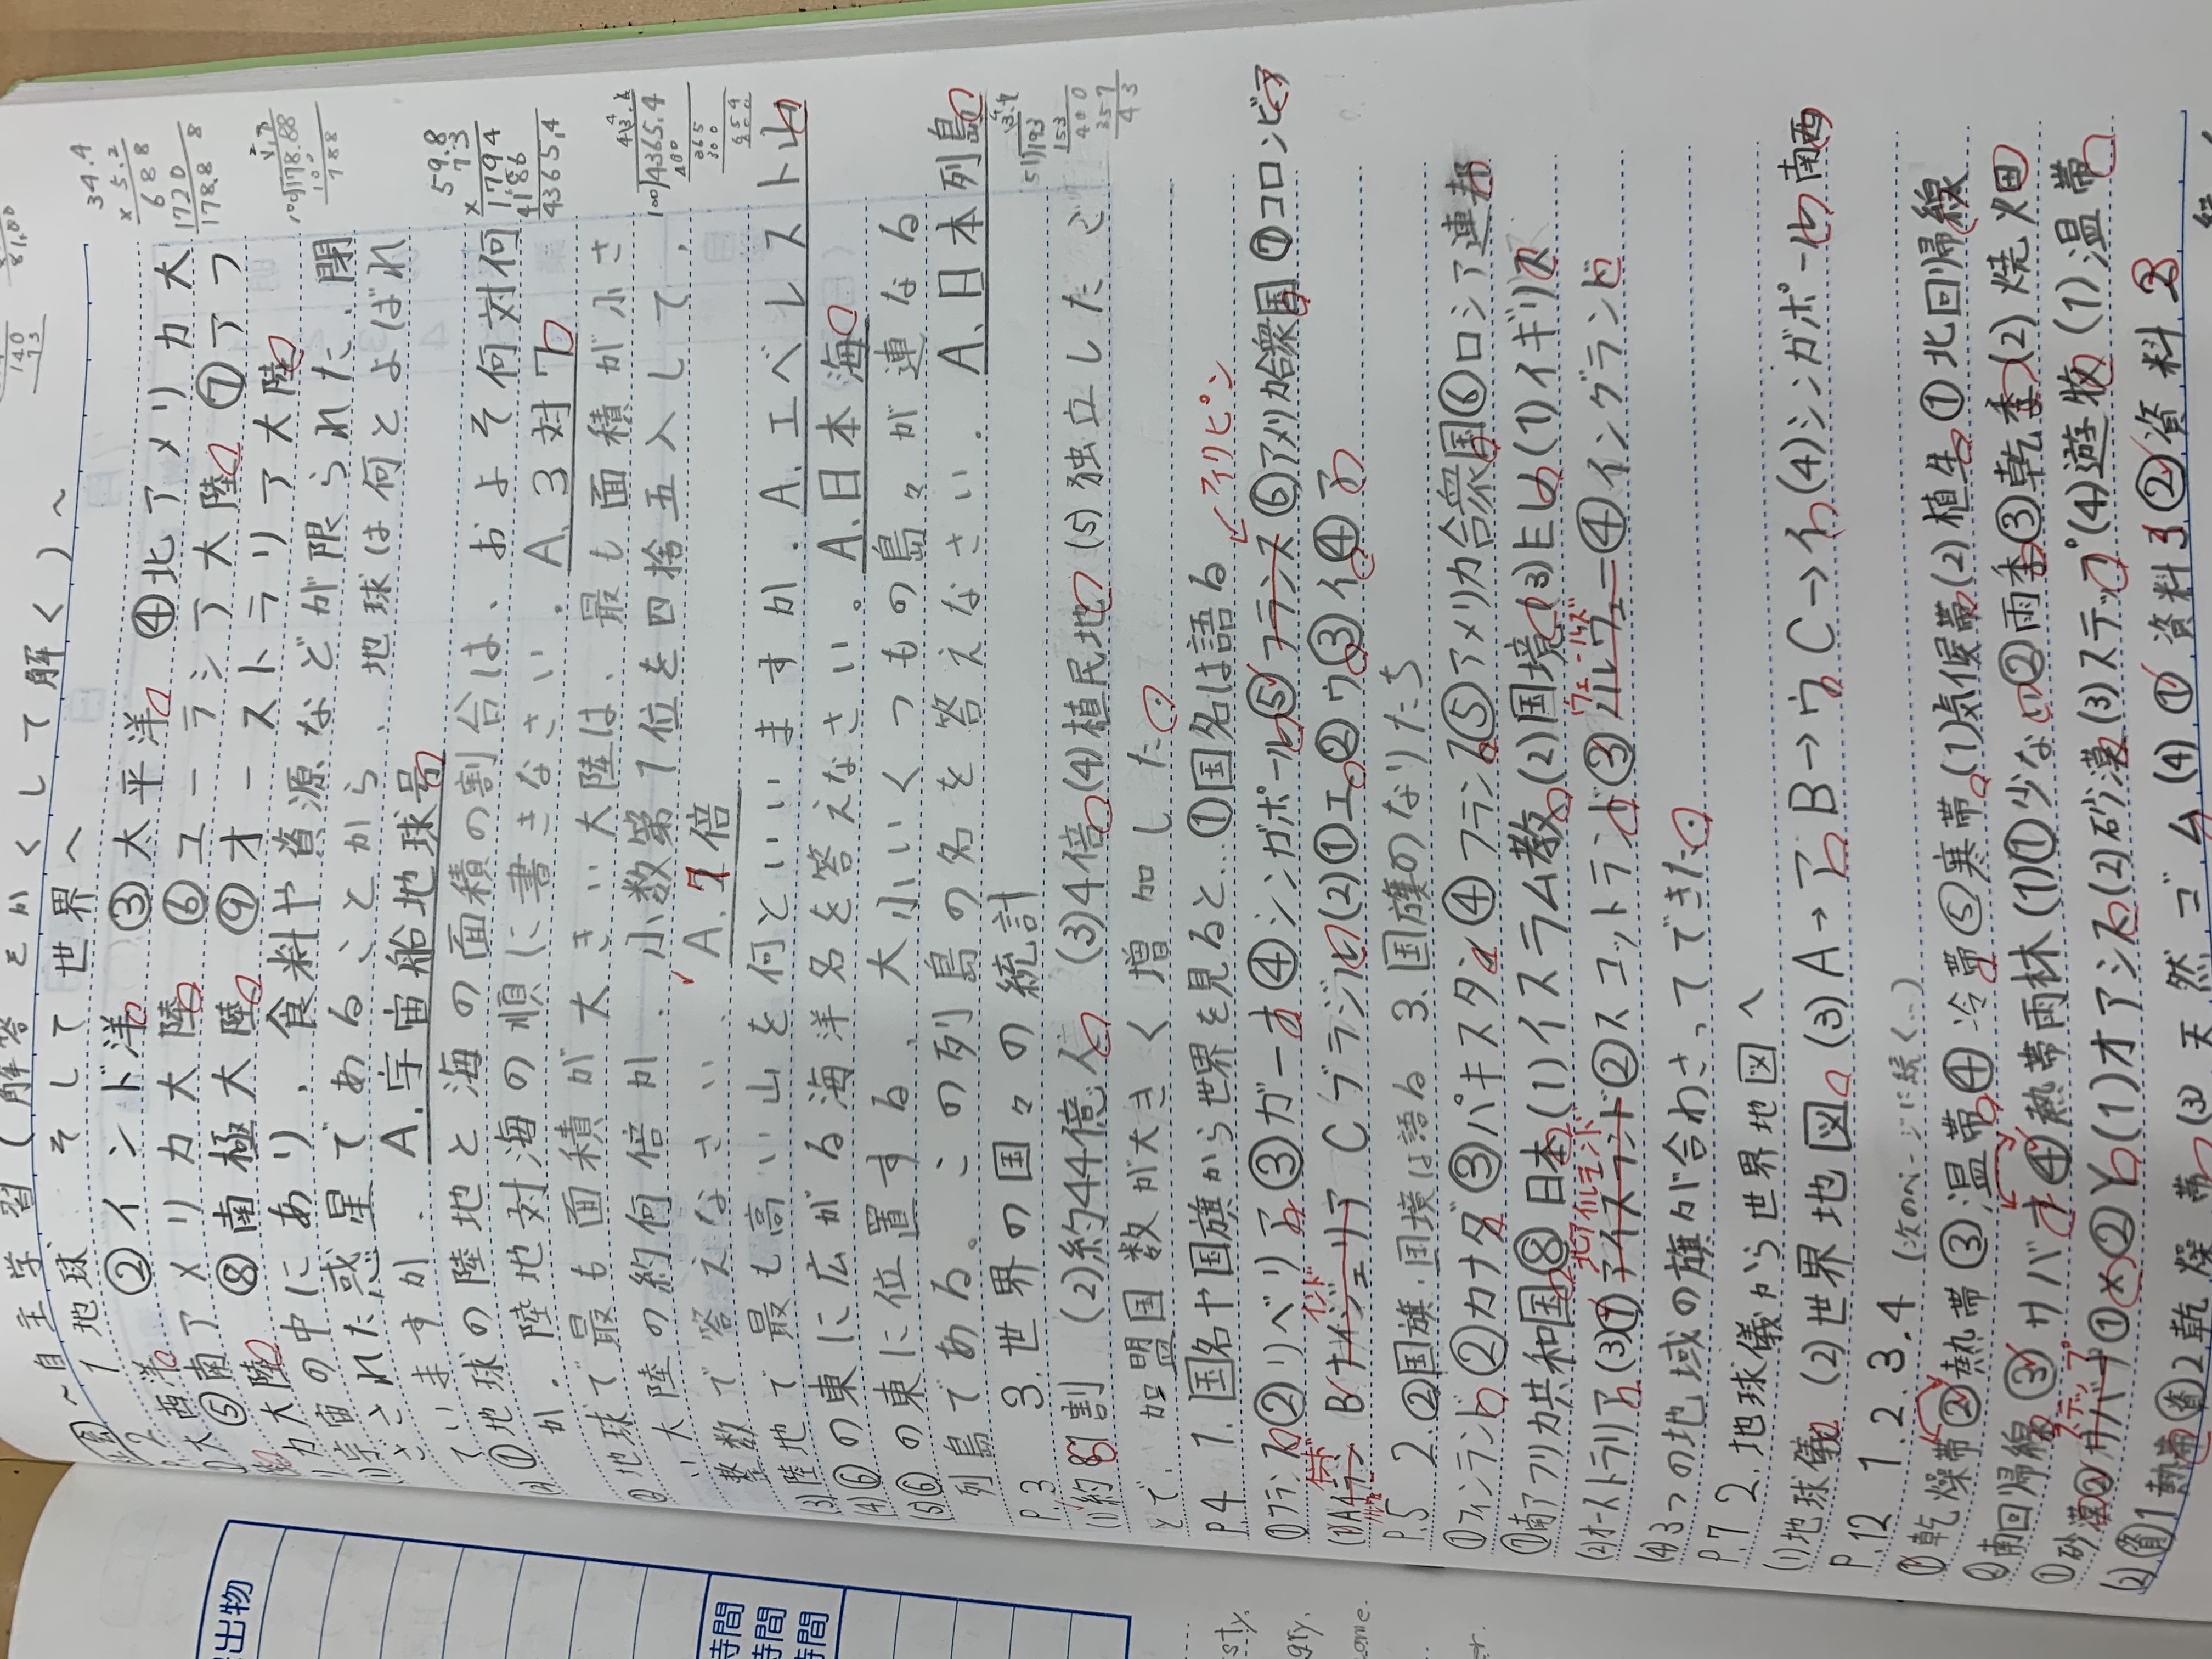 ～自主学習(解答をかくして解く)～
1 地球、そして世界へ
②インド洋 ③太平洋 ④北アメリカ大
⑤南アメリカ大陸 ⑥ユーラシア大陸 ⑦アフ
リカ大陸 ⑧南極大陸 ⑨オーストラリア大陸
宇宙の中にあり、食料や資源などが限られた、閉
ざされた惑星であることから、地球は何とよばれ
ていますか. A.宇宙船地球号
①地球の陸地と海の面積の割合は、およそ何対何
か. 陸地対海の順に書きなさい. A.3対7
②地球で最も面積が大きい大陸は、最も面積が小さ
い大陸の約何倍か. 小数第1位を四捨五入して,
整数で答えなさい. A.7倍
(3)陸地で最も高い山を何といいますか. A.エベレスト山
(4)⑥の東に広がる海洋名を答えなさい。 A.日本海
(5)⑥の東に位置する、大小いくつもの島々が連なる
列島である。この列島の名を答えなさい. A.日本列島
P.3 3.世界の国々の統計
(1)約割 (2)約44億人 (3)4倍 (4)植民地 (5)独立したこ
とで、加盟国数が大きく増加した.
P.4 1.国名や国旗から世界を見ると…①国名は語る
①フランス②リベリア③ガーナ④シンガポール⑤フランス⑥アメリカ合衆国⑦コロンビア
←フィリピン
B ナイジェリア C ブラジル(2)①エ②ウ③イ④ア
インド
P.5 2.②国旗・国境は語る 3.国旗のなりたち
①フィンランド②カナダ③パキスタン④フランス⑤アメリカ合衆国⑥ロシア連邦
⑦南アフリカ共和国⑧日本(1)イスラム教(2)国境(3)ヒ(1)イギリス
(2)オーストラリア(3)①アイスランド②スコットランド③ノルウェー④イングランド
北アイルランド ウェールズ
(4)3つの地域の旗が合わさってできた.
P.7 2.地球儀から世界地図へ
(1)地球儀 (2)世界地図 (3)A→ア B→ウ C→イ(4)シンガポール 南西
P.12 1.2.3.4 (次のページに続く…)
①乾燥帯②熱帯③温帯④冷帯⑤寒帯(1)気候帯(2)植生①北回帰線
②南回帰線③サバナ④熱帯雨林(1)①少ない②雨季③乾季(2)焼畑
①砂漠②サバナ①×②Y(1)オアシス(2)砂漠(3)ステップ(4)遊牧(1)温帯
ステップ
(2)資1熱帯資2乾燥帯(3)天然ゴム(4)①資料3②資料2
34.4
×5.2
688
1720
178.88
59.8
7.3
1794
4186
4365.4
出物
時間
時間
時間